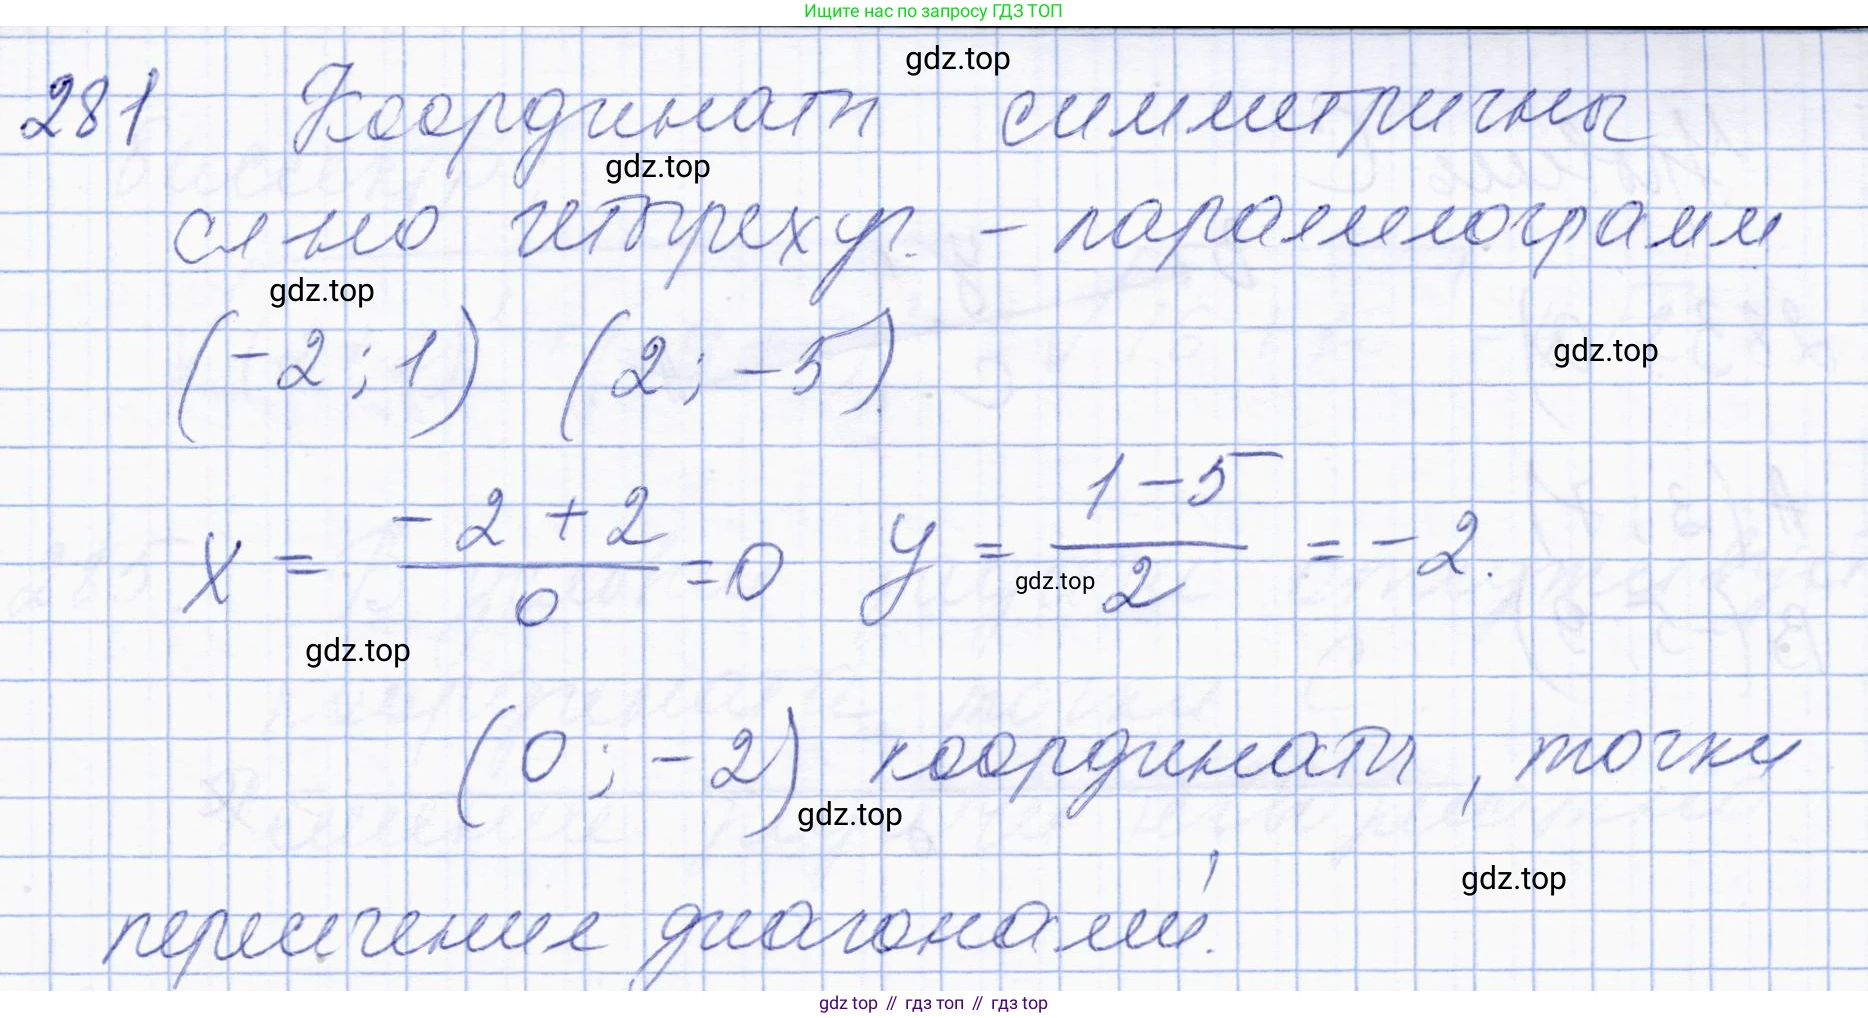 Ищите нас по запросу ГДЗ ТОП
gdz.top
281 Координаты симметричны
gdz.top
сл-но четырехуг. - параллелограмм
gdz.top
(-2; 1) (2; -5)
gdz.top
x = (-2 + 2)/0 = 0 y = (1 - 5)/2 = -2.
gdz.top
gdz.top
(0; -2) координаты, точки
gdz.top
gdz.top
пересечение диагоналей.
gdz top // гдз топ // гдз top